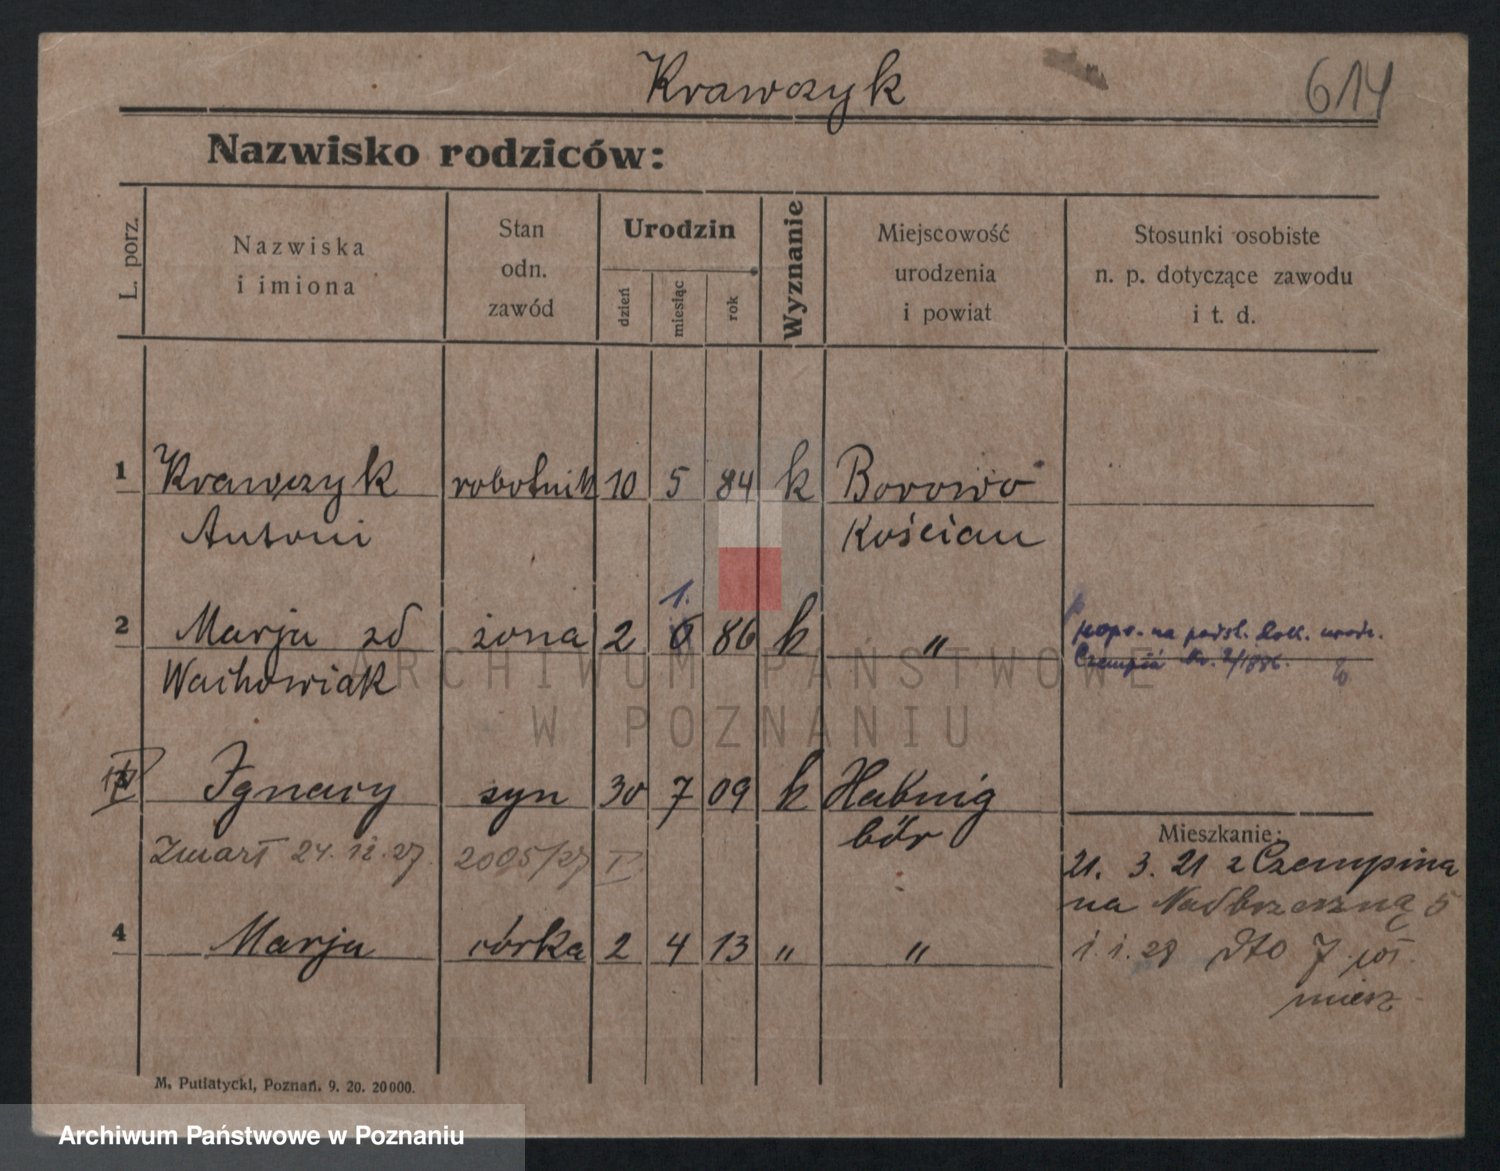 Krawczyk
614
Nazwisko rodziców:
L. porz.
Nazwiska
i imiona
Stan
odn.
zawód
Urodzin
dzień
miesiąc
rok
Wyznanie
Miejscowość
urodzenia
i powiat
Stosunki osobiste
n. p. dotyczące zawodu
i t. d.
1 Krawczyk robotnik 10 5 84 k Borowo
Antoni Kościan
1.
2 Marja zd żona 2 6 86 k "
Wachowiak
popr. na podst. dok. urodz.
Czempiń Nr. 2/1886.
Ignacy syn 30 7 09 k Habnig
bór
Zmarł 24.12.27. 2005/27 P.
4 Marja córka 2 4 13 " "
Mieszkanie:
21. 3. 21 z Czempina
na Nadbrzeżną 5
1.1.28 dto 7
miesz.
M. Putiatycki, Poznań. 9. 20. 20000.
ARCHIWUM PAŃSTWOWE
W POZNANIU
Archiwum Państwowe w Poznaniu